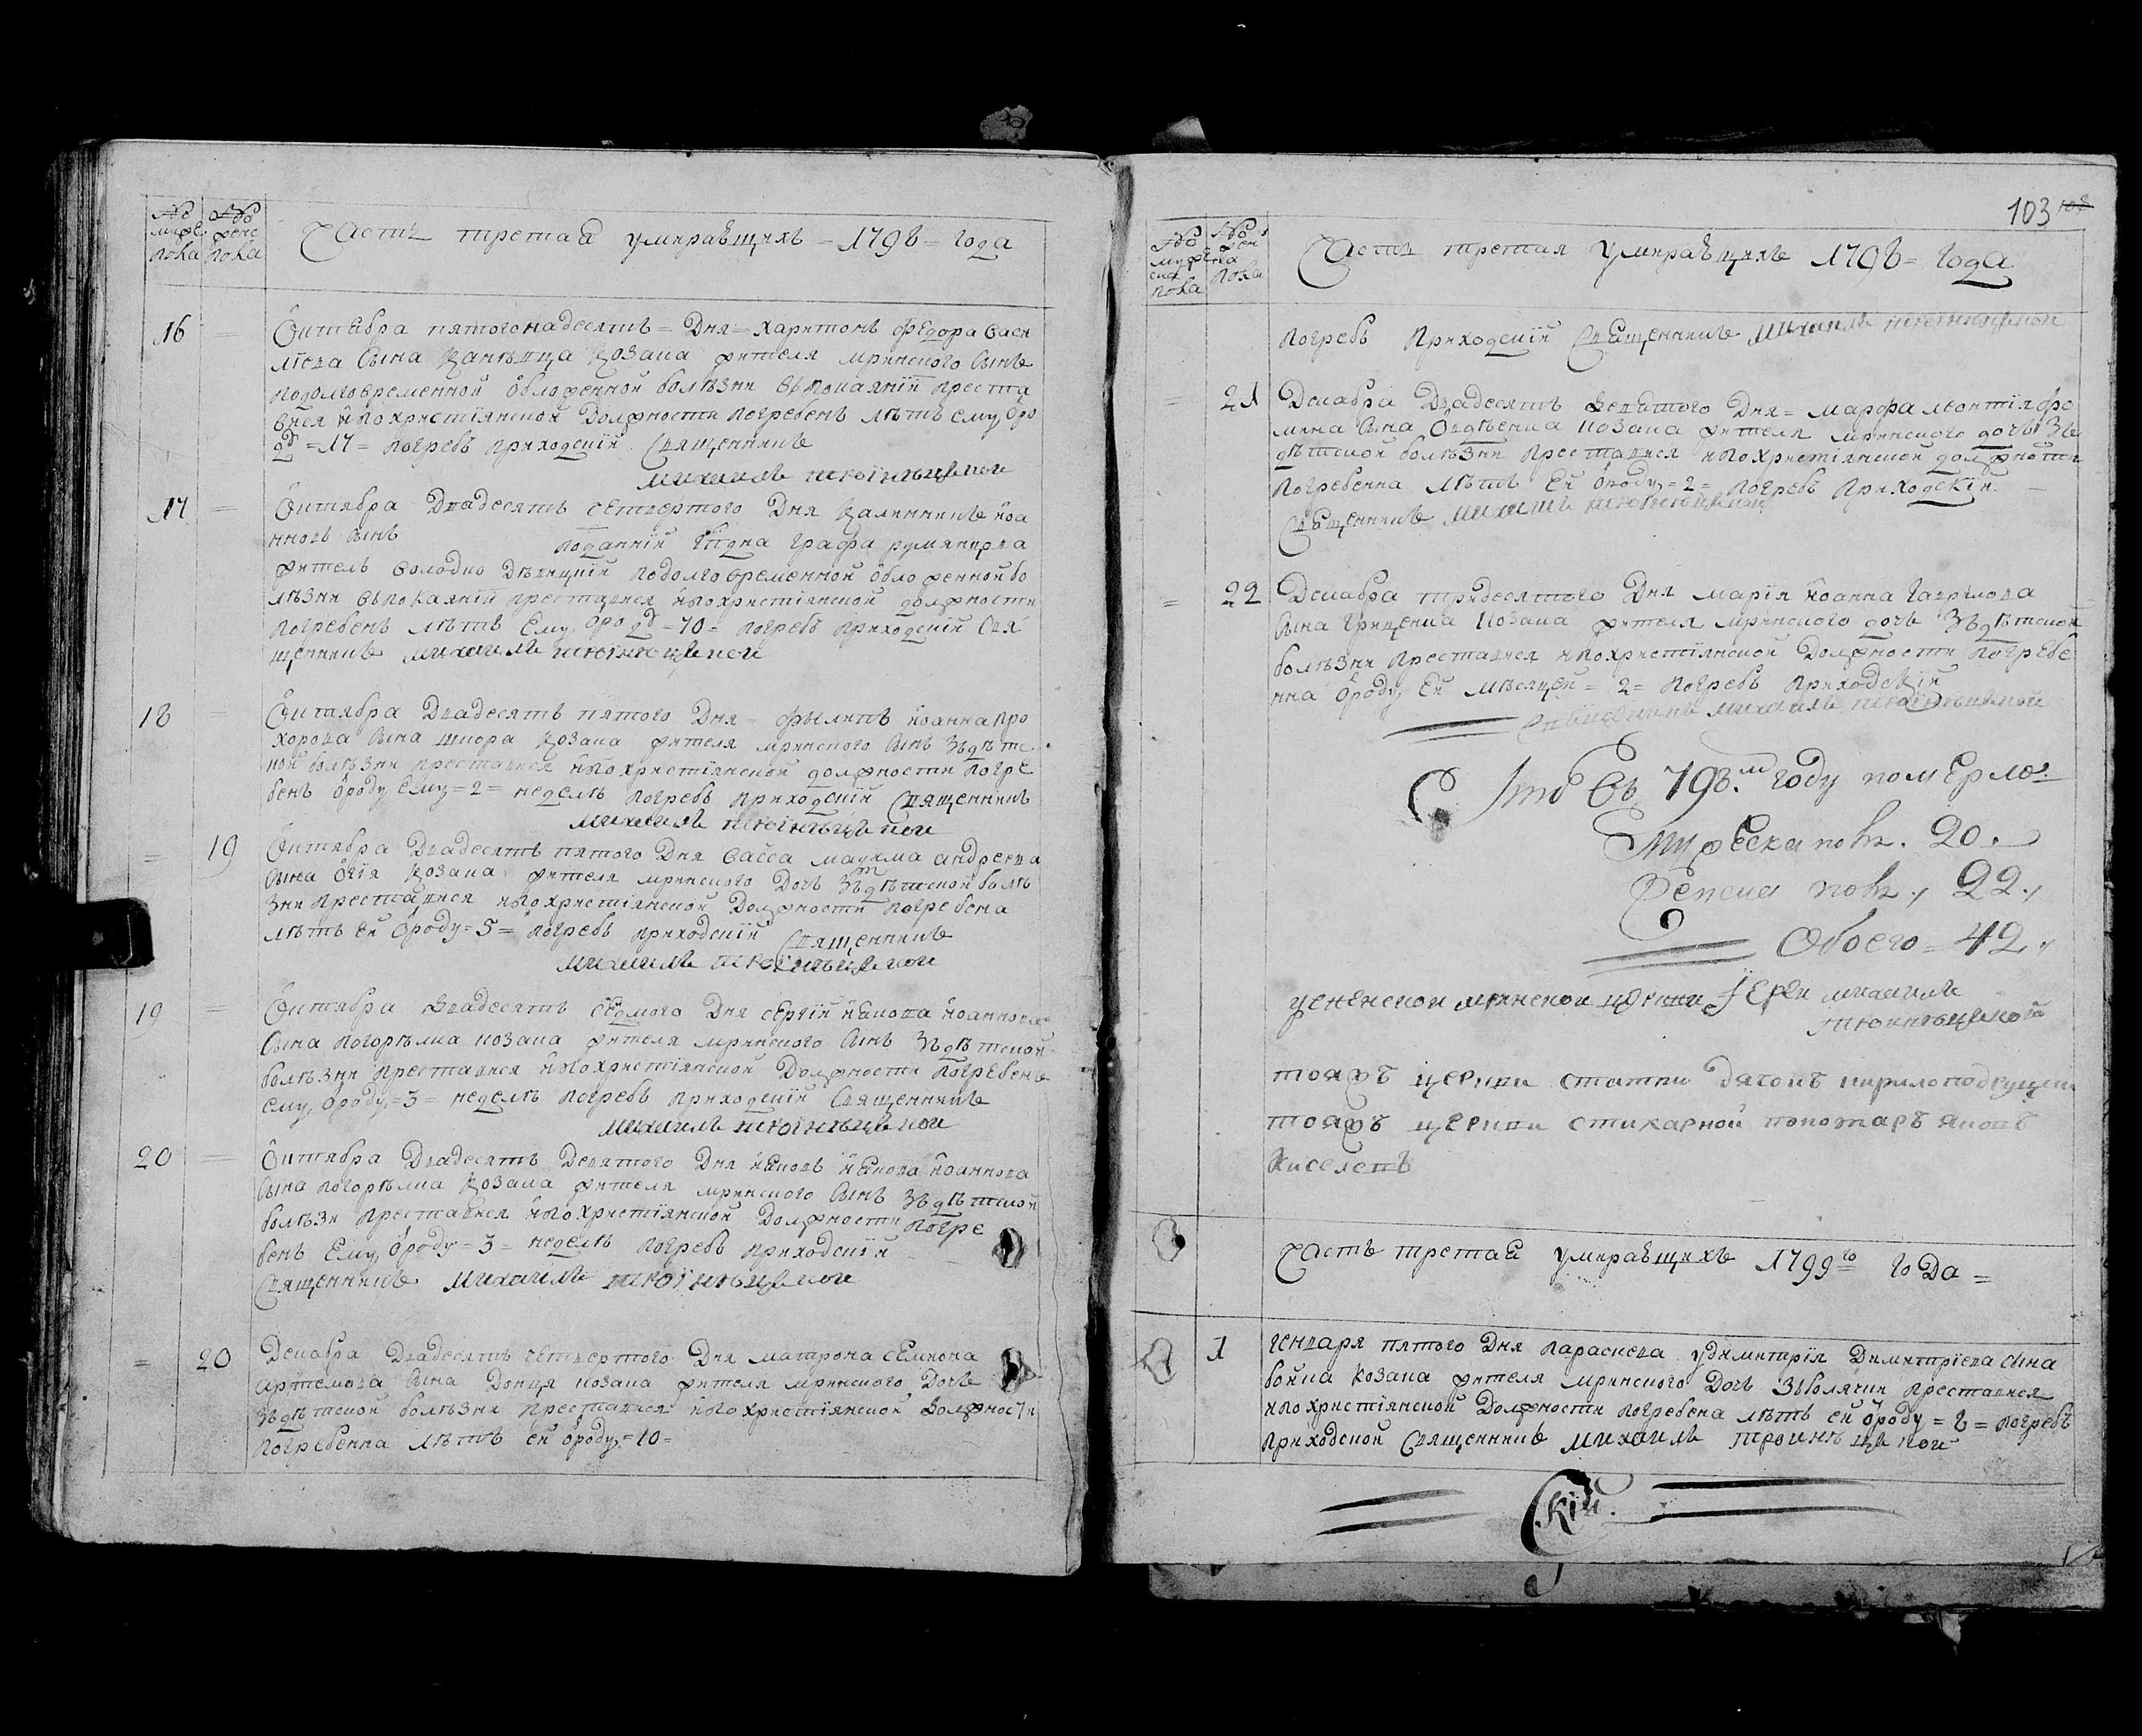 № мужеска пола
№ женска пола
Часть третая умиравщихъ – 1798 = года
16 = Октября пятогонадесять = Дня = харитонъ федора васи
лїева сына козака жителя мринского сынъ
подолговременной обложенной болѣзни въ покаянїи преста
вися ипохристїянской Должности погребенъ лѣтъ ему, оро
ду = 17 = погребъ приходскїй Священникъ
михаилъ
17 = Октября Двадесять четвертого Дня калинникъ іоа
нновъ сынъ поданній графа румянцова
житель володко дѣвицкїй подолговременной обложенной бо
лѣзни въ покаянїй преставися ипохристїянской должности
погребенъ лѣтъ Ему, ороду = 70 = погребъ приходскїй Свя
щенникъ михаилъ
18 Октября Двадесять пятого Дня = филипъ іоанна про
хорова сына шкора козака жителя мринского сынъ зъдѣтс
кой болѣзни преставися ипохристїянской должности погре
бенъ ороду ему = 2 = неделѣ погребъ приходскїй Священникъ
михаилъ
= 19 Октября Двадесять пятого Дня васса андреева
сына козака жителя мринского Дочь зъдѣтской болѣ
зни преставися ипохристїянской Должности погребена
лѣтъ ей ороду = 5 = погребъ приходскїй Священникъ
михаилъ
19 = Октября Двадесять седмого Дня сергїй іакова іоаннова
сына погорѣлка козака жителя мринского сынъ зъдѣтской
болѣзни преставися ипохристїянской Должности погребенъ
ему, ороду = 3 = неделѣ погребъ приходскїй Священникъ
михаилъ
20 = Октября Двадесять Девятого Дня іаковъ іакова іоаннова
сына погорѣлка козака жителя мринского сынъ зъдѣтской
болѣзи преставися ипохристїянской Должности погре
бенъ Ему, ороду = 3 = неделѣ погребъ приходскїй
Священникъ михаилъ
= 20 Декабра Двадесять четвертого Дня матрона семиона
артемова сына Донця козака жителя мринского Дочь
зъдѣтской болѣзни преставися ипохристїянской Должности
погребенна лѣтъ ей ороду, = 10 =
103
№ мужеска пола
№ женска пола
Часть третая умиравщихъ 1798 = года
погребъ приходскїй Священникъ михаилъ
= 21 Декабра Двадесять Девятого Дня = марфа леонтїя фо
мина сына козака жителя мринского дочь зъ
дѣтской болѣзни преставися ипохристїянской должности
погребенна лѣтъ ей ороду, = 2 = погребъ приходскїй.
Священникъ михаилъ
= 22 Декабра тридесятого Дня марїя іоанна гаврилова
сына грищенка козака жителя мринского дочь зъдѣтской
болѣзни преставися ипохристїянской Должности погребе
нна ороду, ей мѣсяцей = 2 = погребъ приходскїй
священникъ михаилъ
въ 798.м году померло
Мужеска полъ. 20.
женска полъ, 22.,
Обоего = 42.,
успенской мринской церкви Іерей михаилъ
тояжъ церкви дячокъ кирило
тояжъ церкви стихарной пономаръ яковъ
киселевъ
Часть третая умиравщихъ 1799го года =
1 генваря пятого Дня параскева димитрїя Димитрїева сина
бойка козака жителя мринского Дочь преставися
ипохристїянской Должности погребена лѣтъ ей ороду = 8 = погребъ
приходской Священникъ михаилъ
Скїй.